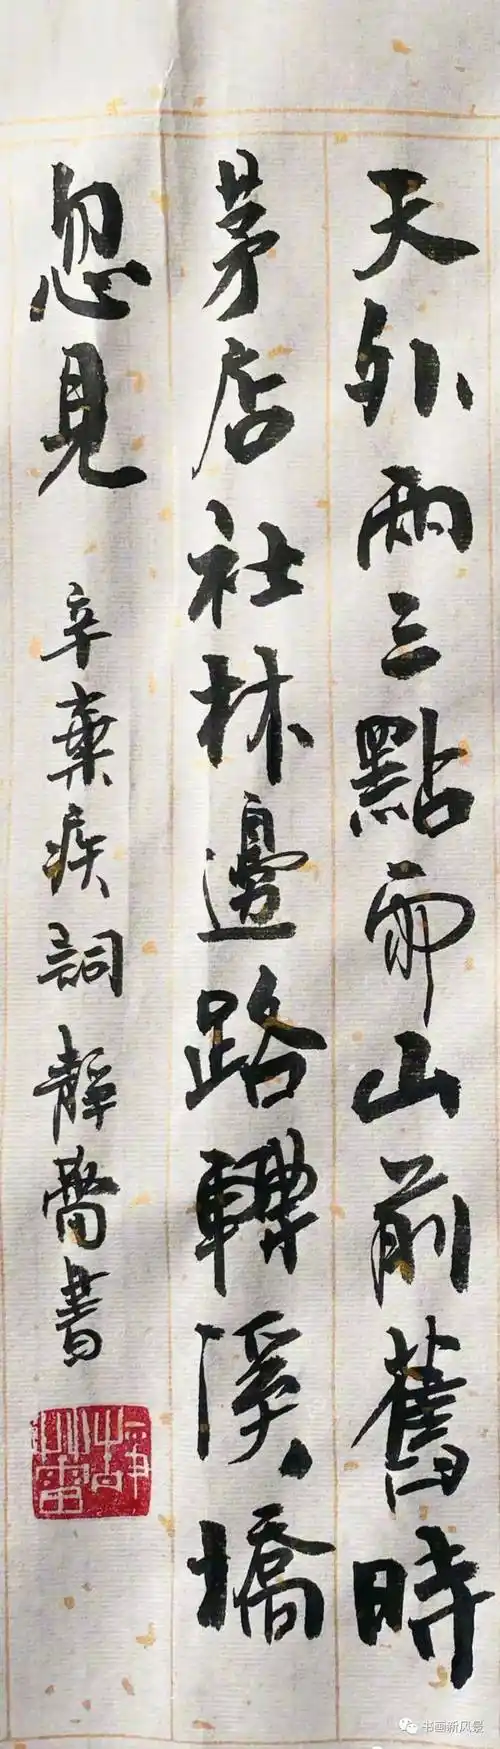 天外兩三點雨山前舊時
茅店社林邊路轉溪橋
忽見
辛棄疾詞靜齋書
书画新风景